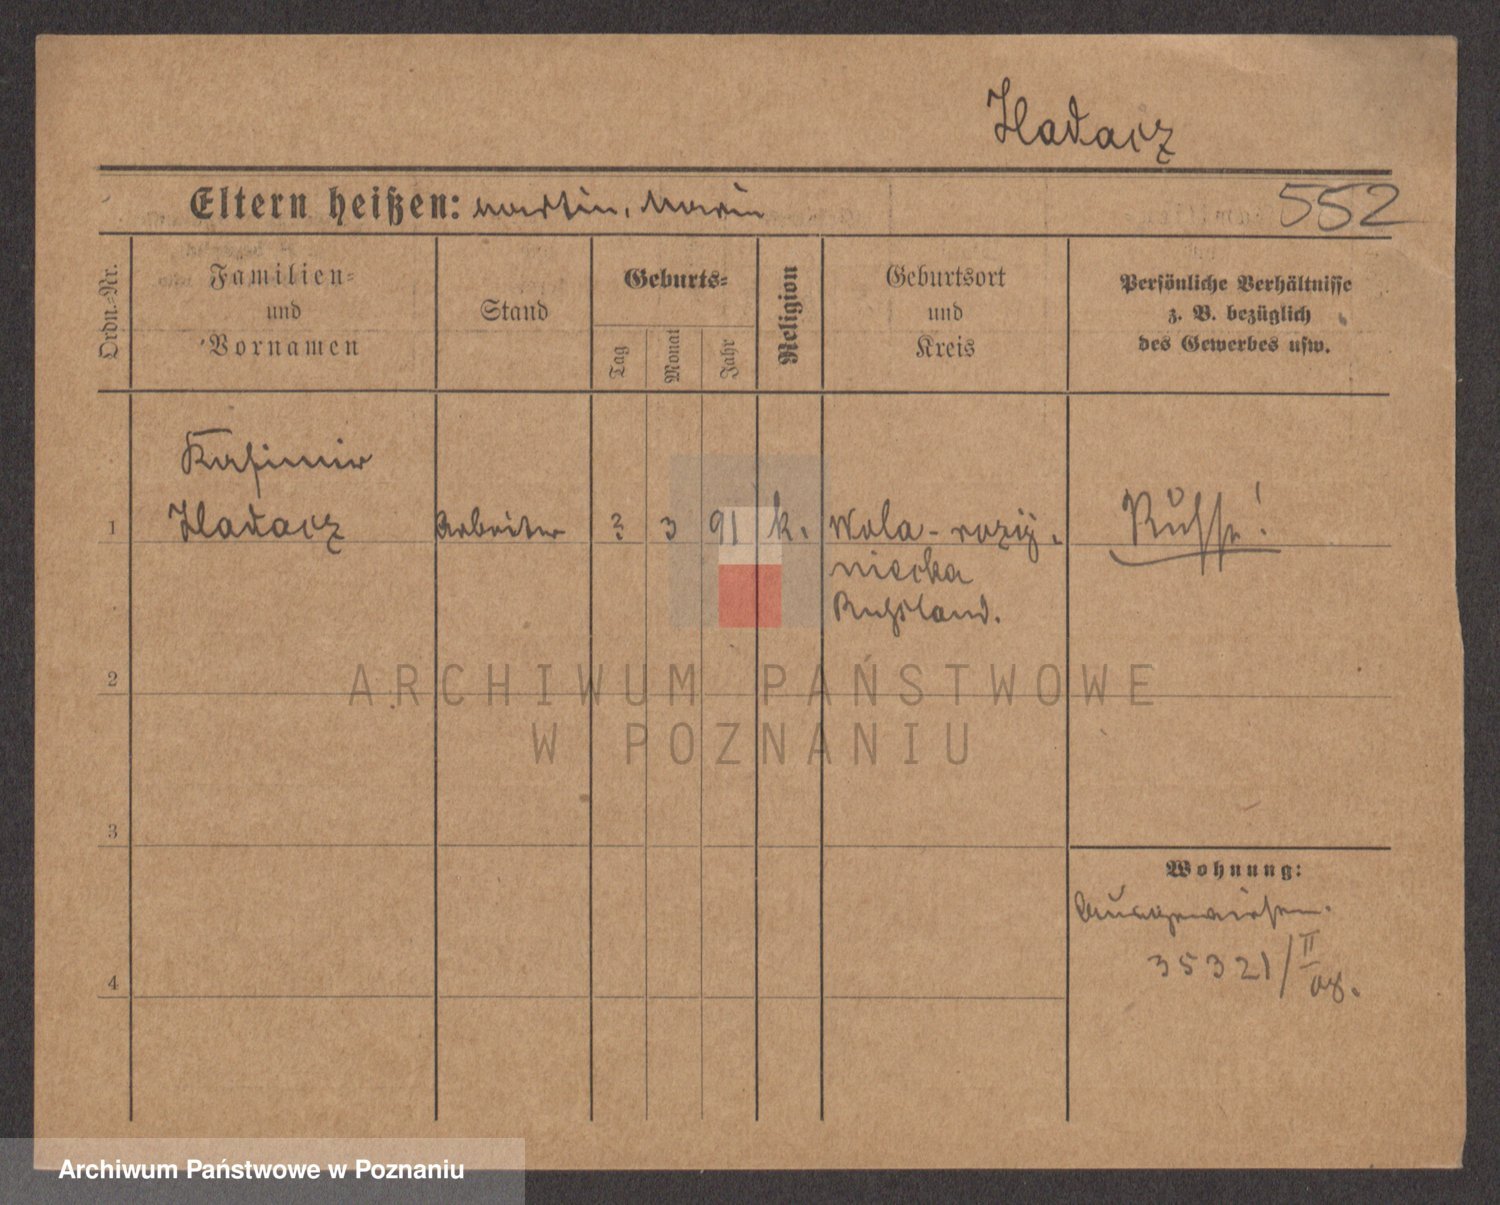 Hadacz
Eltern heißen: Martin, Marie
552
Ordn.=Nr.
Familien=
und
Vornamen
Stand
Geburts=
Tag
Monat
Jahr
Religion
Geburtsort
und
Kreis
Persönliche Verhältnisse
z. B. bezüglich
des Gewerbes usw.
Kasimir
1 Hadacz Arbeiter ? 3 91 k. Wola-rozy.
niecka
Russland.
Russe!
2
ARCHIWUM PAŃSTWOWE
W POZNANIU
3
Wohnung:
Ausgewiesen.
35321/II
4
Archiwum Państwowe w Poznaniu